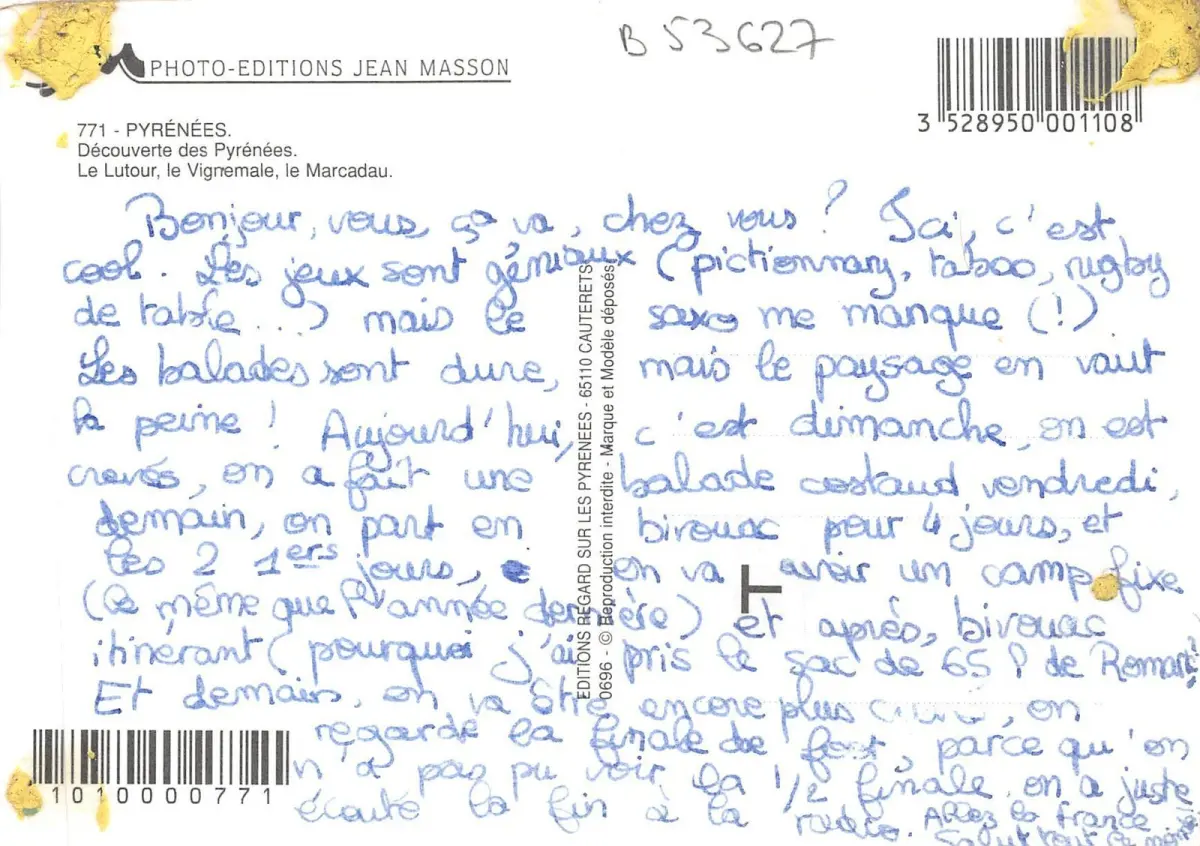 B 53627
PHOTO-EDITIONS JEAN MASSON
3 528950 001108
771 - PYRÉNÉES.
Découverte des Pyrénées.
Le Lutour, le Vignemale, le Marcadau.
Bonjour, vous ça va, chez vous ? Ici, c'est
cool. Les jeux sont géniaux (pictionnary, taboo, rugby
de table ...) mais le saxo me manque (!)
Les balades sont dure, mais le paysage en vaut
la peine ! Aujourd'hui, c'est dimanche, on est
crevés, on a fait une balade costaud vendredi,
demain, on part en bivouac pour 4 jours, et
les 2 1ers jours, on va avoir un camp fixe
(le même que l'année dernière) et après, bivouac
itinérant (pourquoi j'ai pris le sac de 65 l de Roman
Et demain, on va être encore plus on
regarde la finale de foot, parce qu'on
n'a pas pu voir la 1/2 finale, on a juste
écouté la fin à la radio. Allez la france
Salut tout le
EDITIONS REGARD SUR LES PYRENEES - 65110 CAUTERETS
0696 - © Reproduction interdite - Marque et Modèle déposés
1010000771